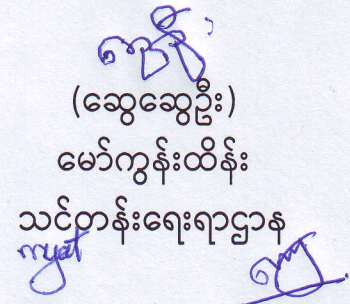 (ဆွေဆွေဦး)
မော်ကွန်းထိန်း
သင်တန်းရေးရာဌာန
myat